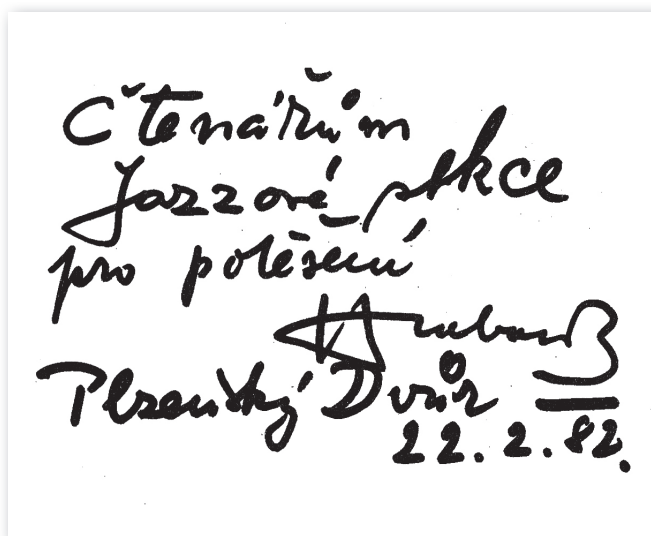 Čtenářům
Jazzové sekce
pro potěšení
Hrabal B
Plzeňský Dvůr
22. 2. 82.